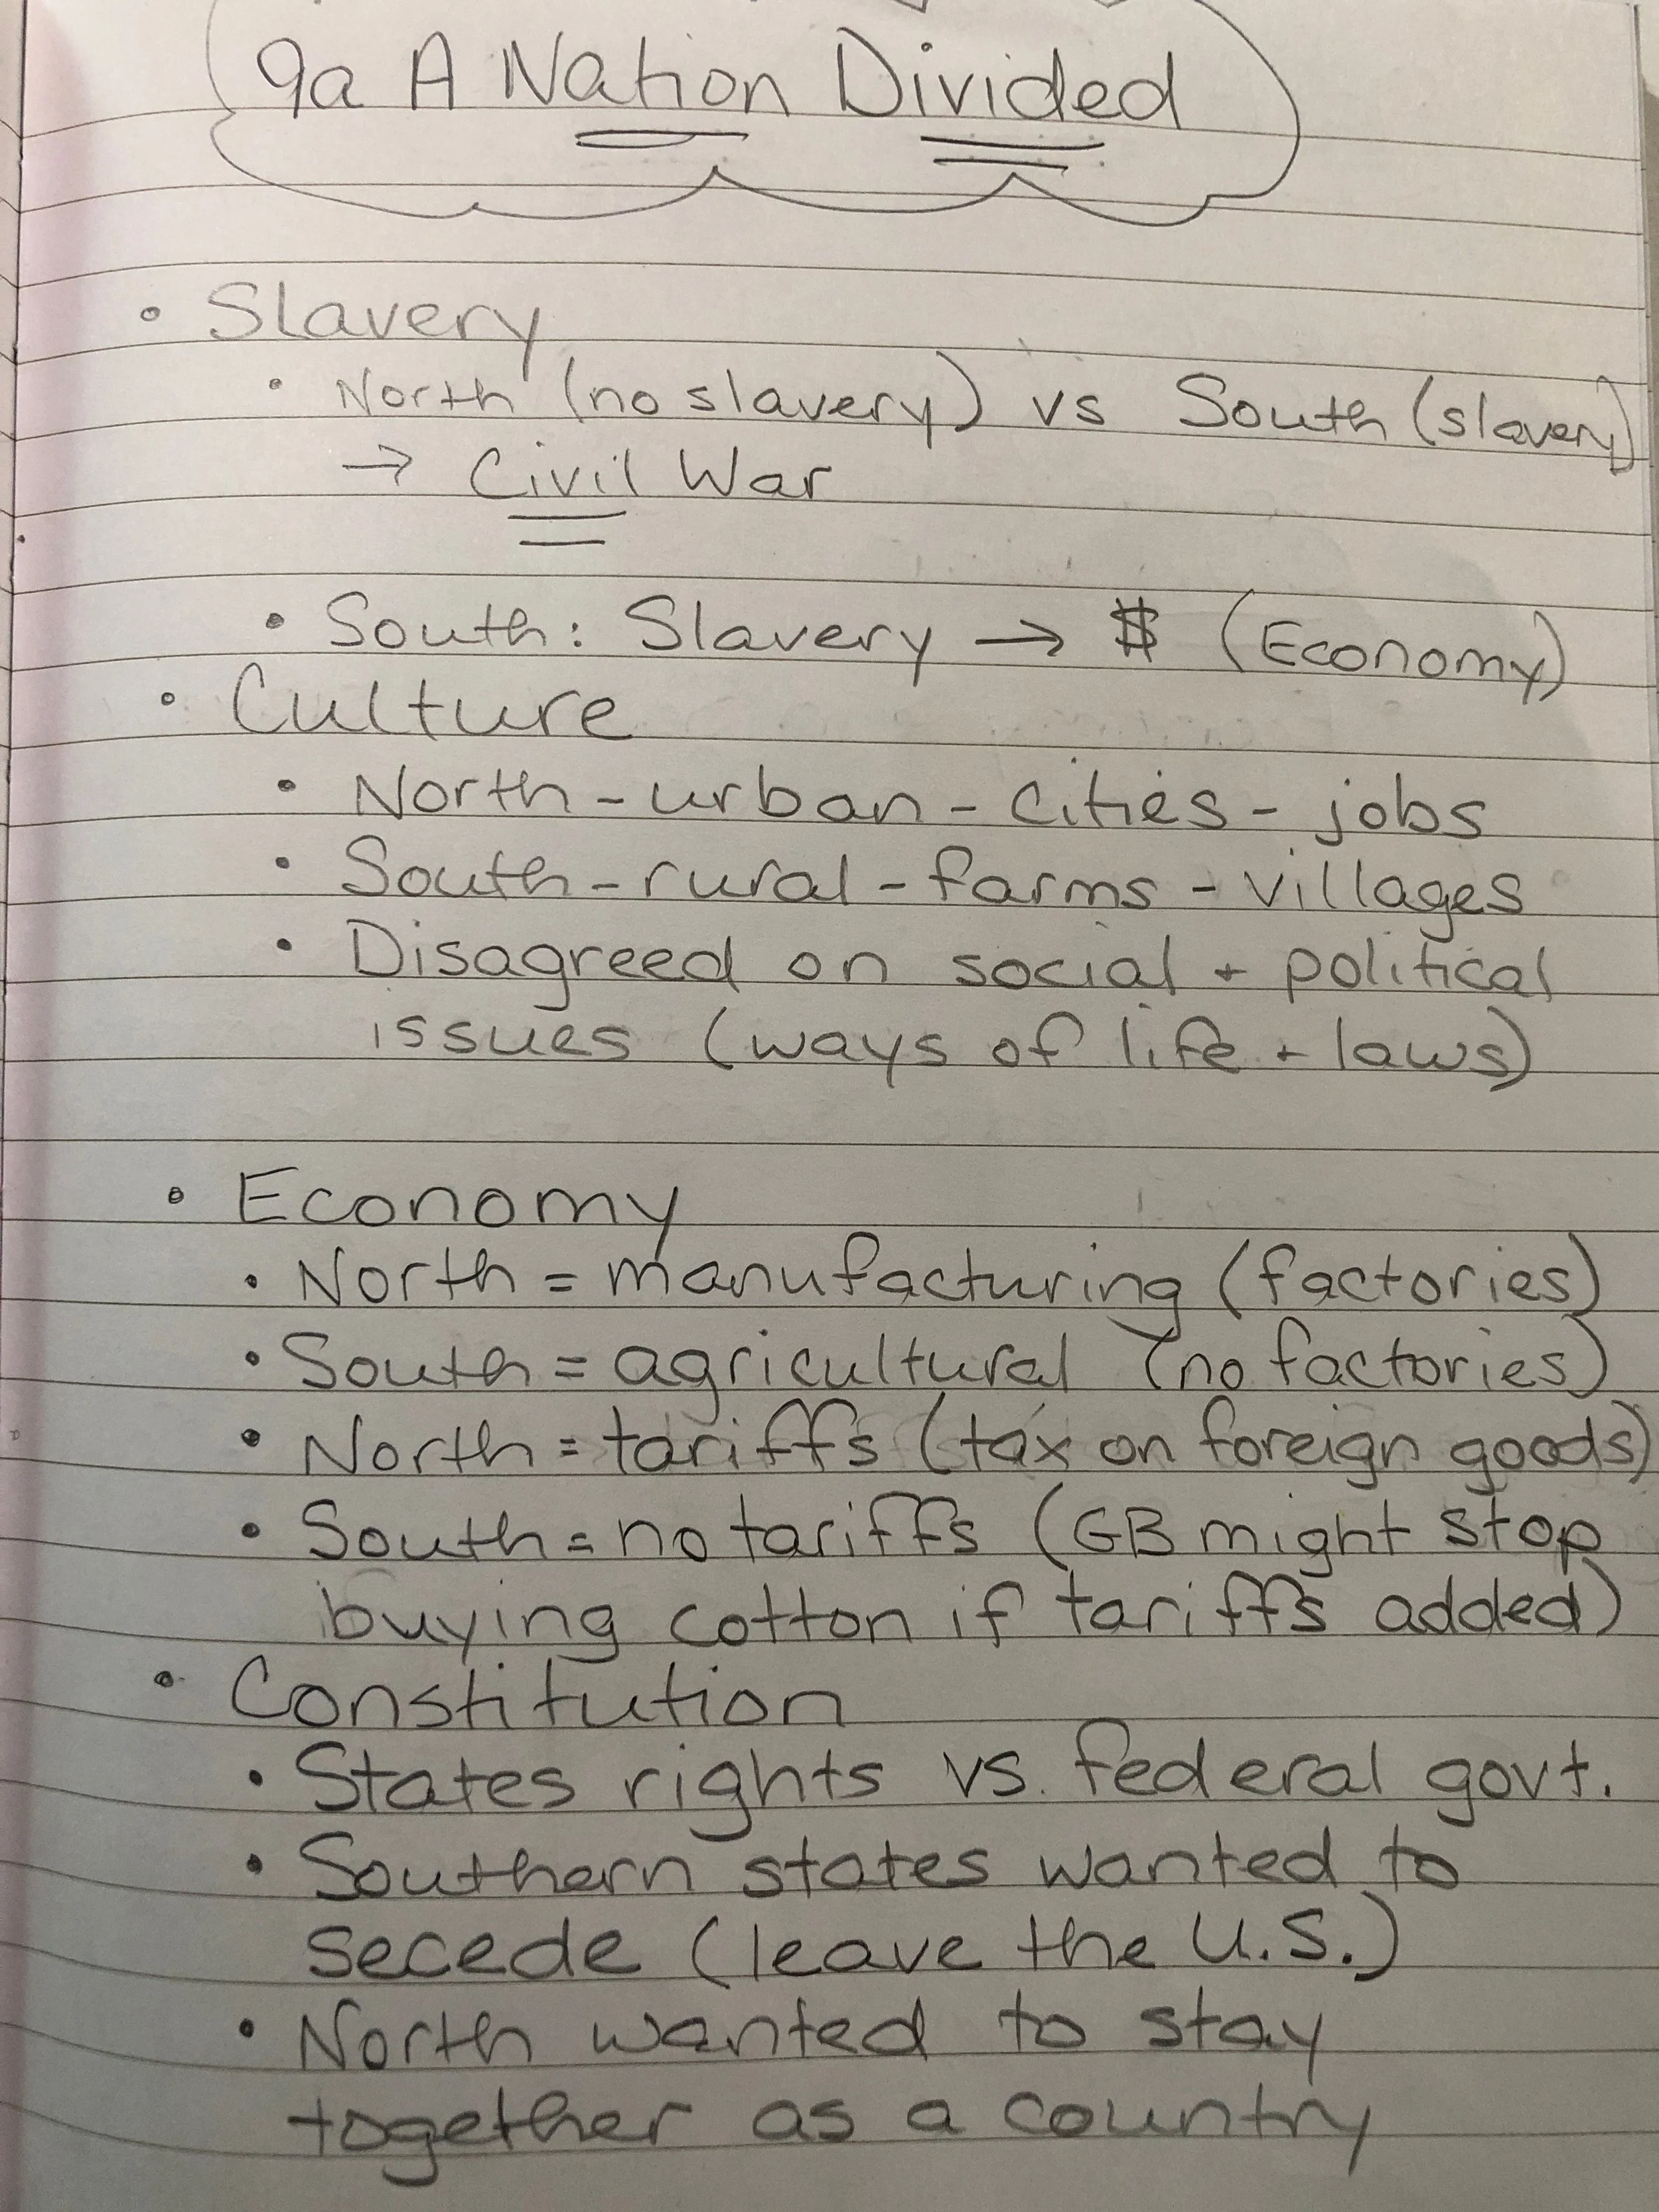 9a A Nation Divided
• Slavery
• North (no slavery) vs South (slavery)
→ Civil War
• South: Slavery → $ (Economy)
• Culture
• North - urban - cities - jobs
• South - rural - farms - villages
• Disagreed on social + political
issues (ways of life + laws)
• Economy
• North = manufacturing (factories)
• South = agricultural (no factories)
• North = tariffs (tax on foreign goods)
• South = no tariffs (GB might stop
buying cotton if tariffs added)
• Constitution
• States rights vs. federal govt.
• Southern states wanted to
secede (leave the U.S.)
• North wanted to stay
together as a country